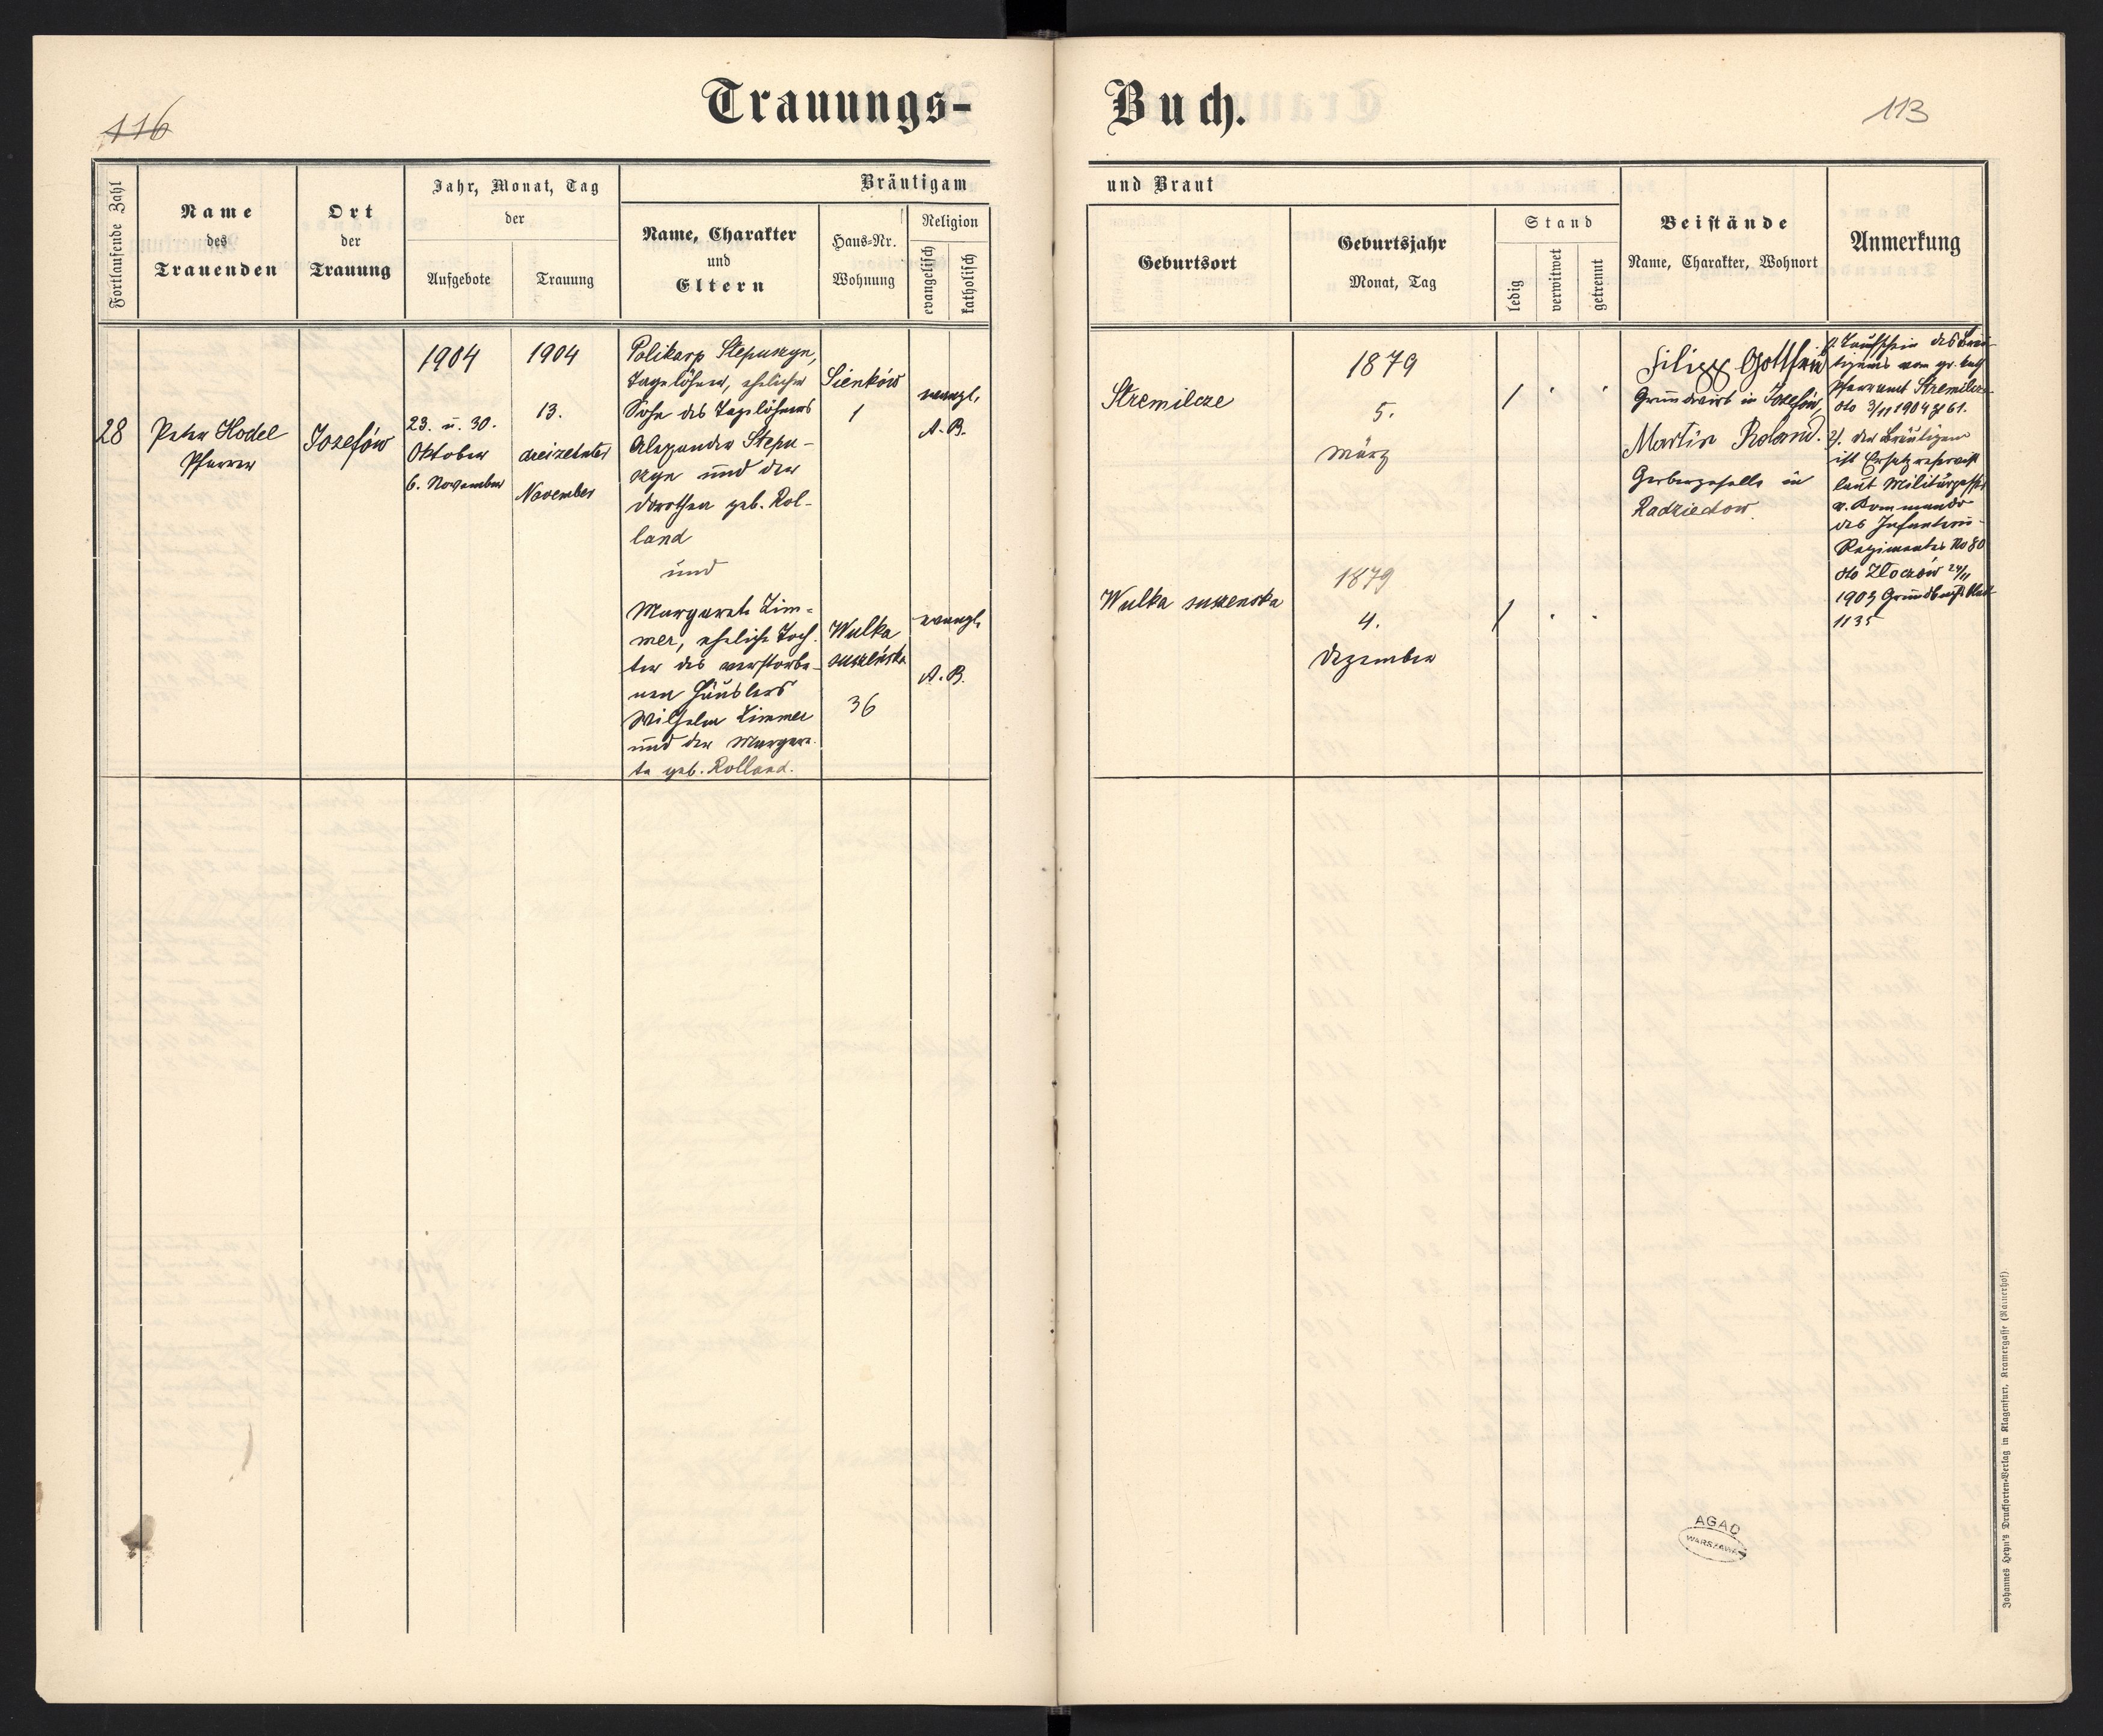 Trauungs-
Buch.
116
113
Fortlaufende Zahl
Name
des
Trauenden
Ort
der
Trauung
Jahr, Monat, Tag
der
Aufgebote
Trauung
Bräutigam
Name, Charakter
und
Eltern
Haus-Nr.
Wohnung
Religion
evangelisch
katholisch
und Braut
Geburtsort
Geburtsjahr
Monat, Tag
Stand
ledig
verwitwet
getrennt
Beistände
Name, Charakter, Wohnort
Anmerkung
28
Peter Hodel
Pfarrer
Josefów
1904
23. u. 30.
Oktober
6. November
1904
13.
dreizehnter
November
Polikarp Stepuszyn,
Tagelöhner, ehelicher
Sohn des Tagelöhners
Alexander Stepu-
szyn und der
Dorothea geb. Rol-
land
und
Margareta Zim-
mer, eheliche Toch-
ter des verstorbe-
nen Häuslers
Wilhelm Zimmer
und der Margare-
ta geb. Rolland.
Sienków
1
evangl.
A. B.
Wulka
suszeńska
36
evangl.
A. B.
Stremilcze
1879
5.
März
/ . .
Wulka suszenska
1879
4.
Dezember
/ . .
Filipp Gottfried
Grundwirt in Josefów,
Martin Roland.
Gerbergeselle in
Radziechow.
1. Taufschein des Bräu-
tigams vom gr. kath
Pfarramt Stremilcze
dto 3/11 1904 Z 61.
2). der Bräutigam
ist Ersatzreservist
laut Militärpasses
v. Kommando
des Infanterie-
Regimentes No 80
dto Złoczów 24/11
1903 Grundbuchs Blatt
1135
AGAD
WARSZAWA
Johannes Heyn's Drucksorten-Verlag in Klagenfurt, Kramergasse (Rainerhof)